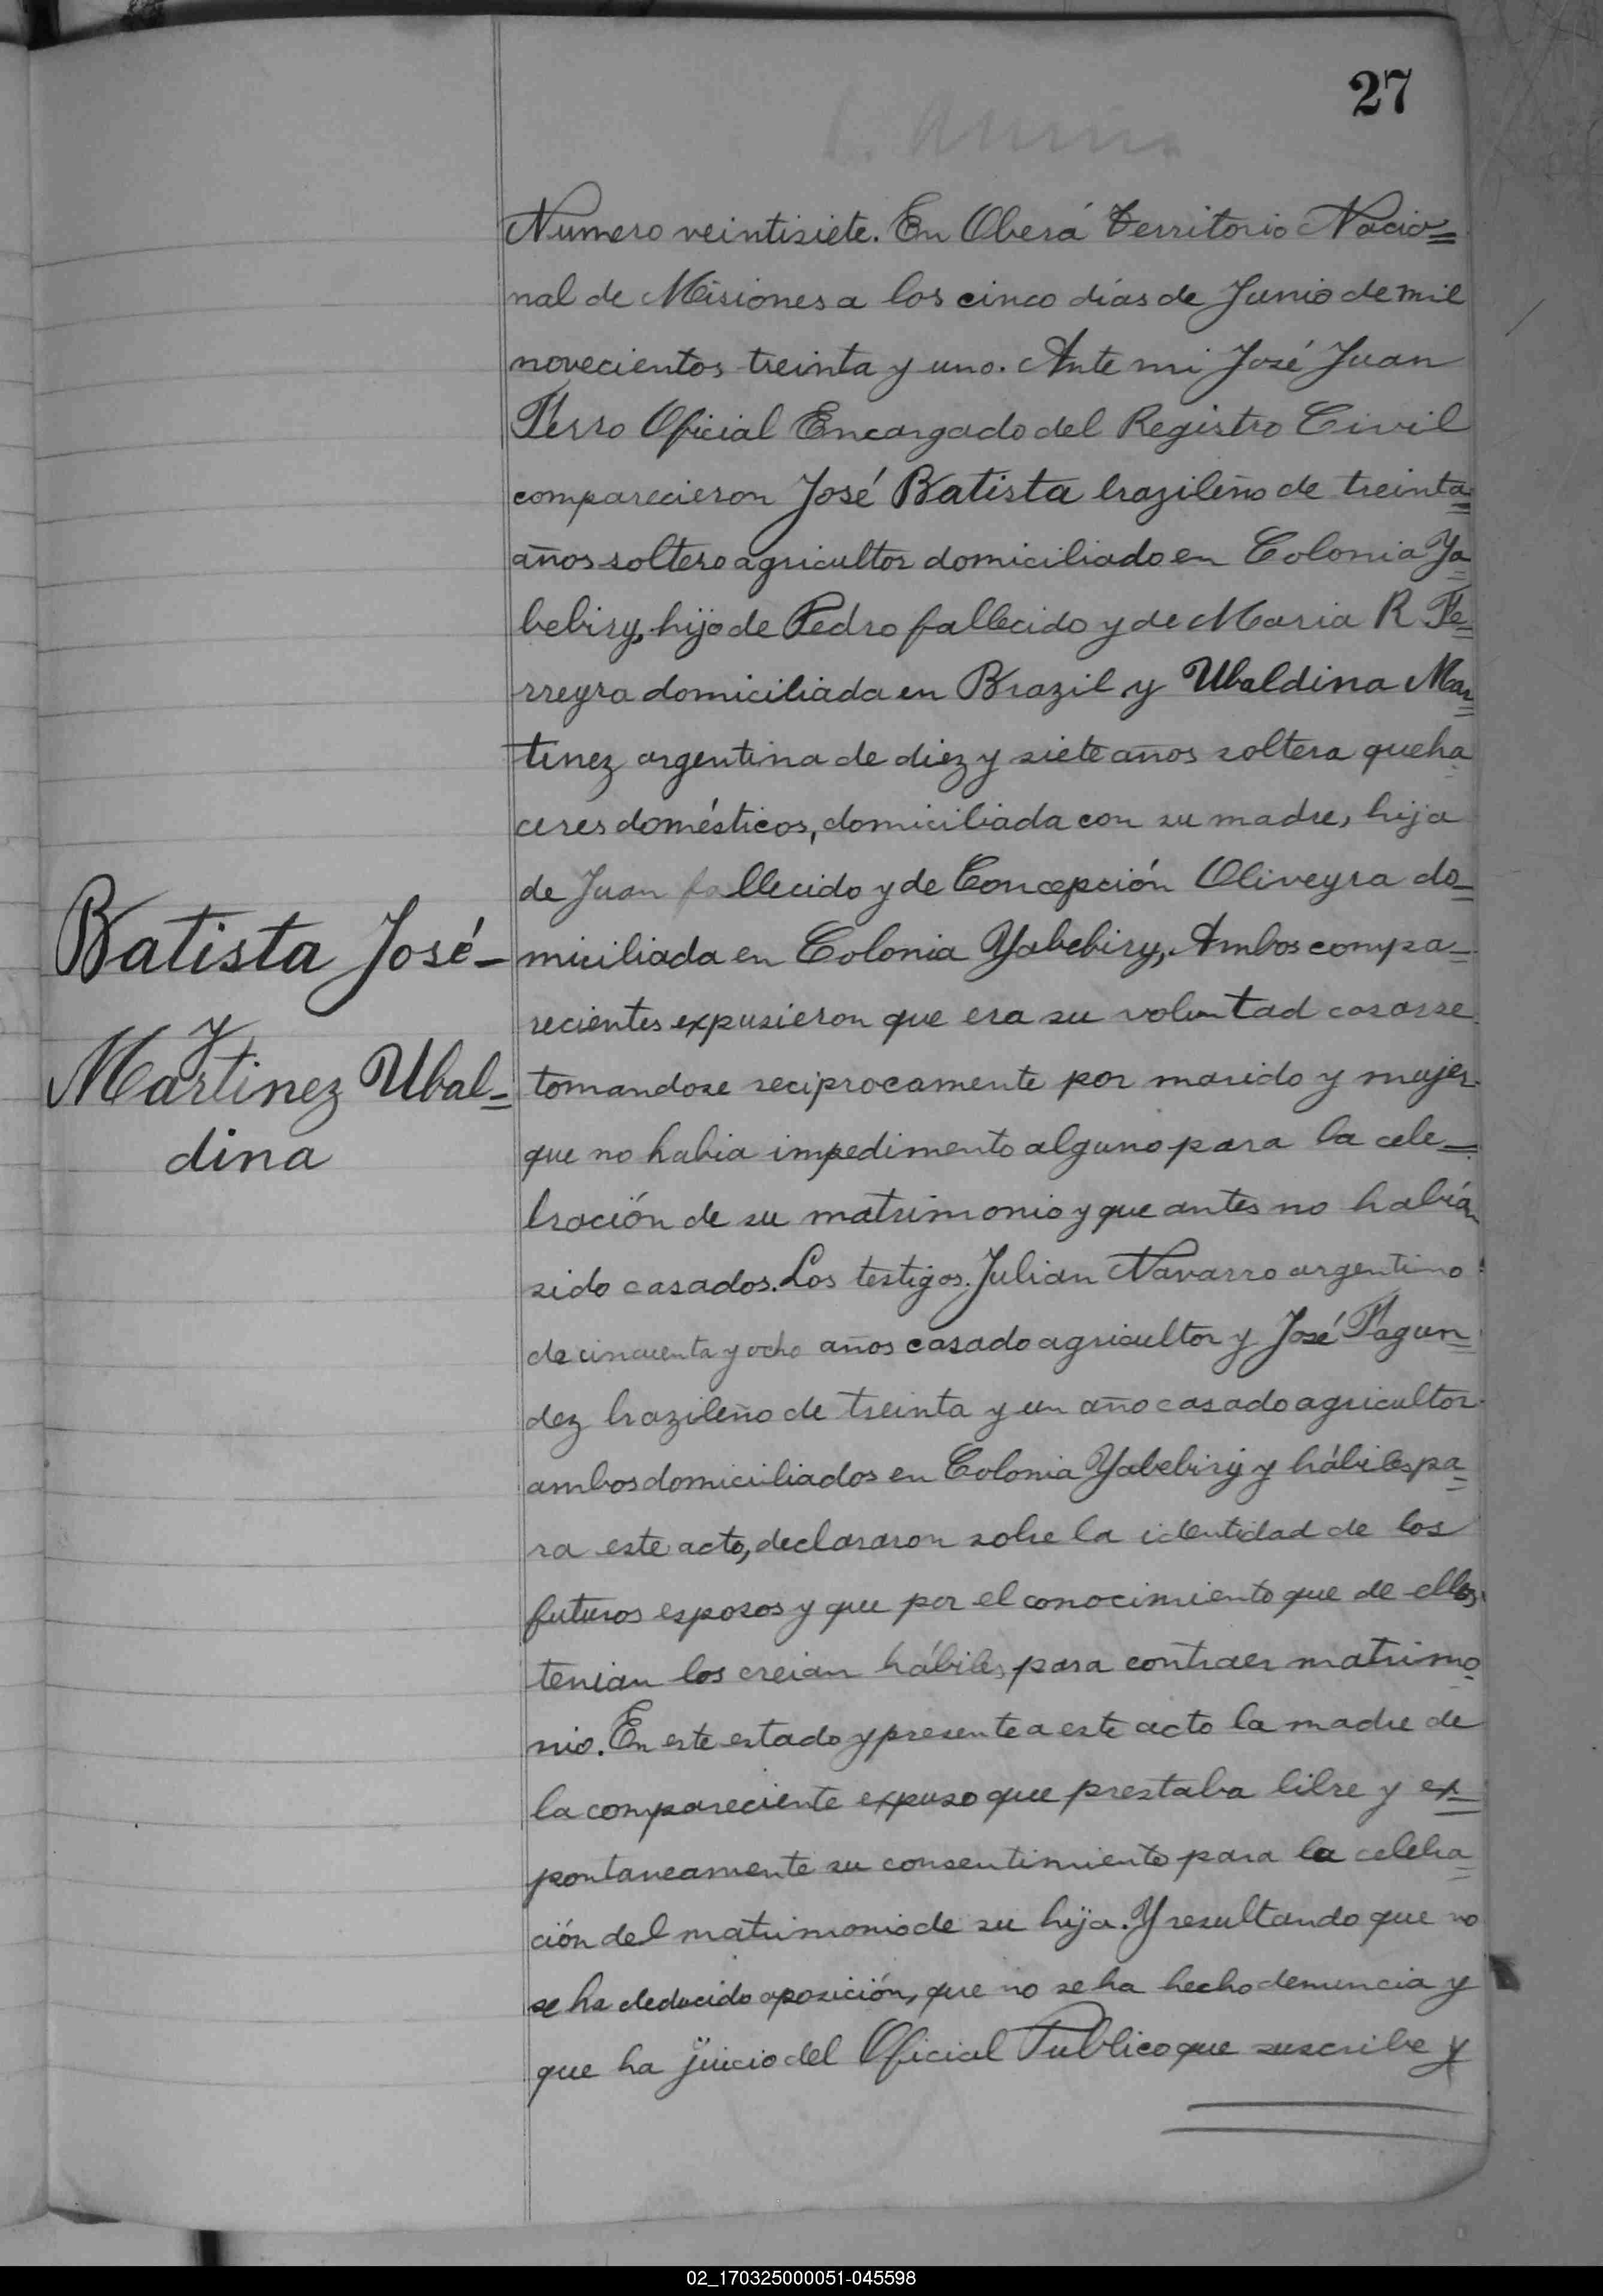 27
Numero veintisiete. En Oberá Territorio Nacio=
nal de Misiones a los cinco días de Junio de mil
novecientos treinta y uno. Ante mi José Juan
Ferro Oficial Encargado del Registro Civil
comparecieron José Batista brazileño de treinta
años soltero agricultor domiciliado en Colonia Ya=
bebiry, hijo de Pedro fallecido y de Maria R Fe=
rreyra domiciliada en Brazil y Ubaldina Mar=
tinez argentina de diez y siete años soltera queha=
ceres domésticos, domiciliada con su madre, hija
de Juan fallecido y de Concepción Oliveyra do=
miciliada en Colonia Yabebiry, Ambos compa=
recientes expusieron que era su voluntad casarse
tomandose reciprocamente por marido y mujer
que no habia impedimento alguno para la cele=
bración de su matrimonio y que antes no habían
sido casados. Los testigos. Julian Navarro argentino
de cincuenta y ocho años casado agricultor y José Fagun=
dez brazileño de treinta y un año casado agricultor
ambos domiciliados en Colonia Yabebiry y hábiles pa=
ra este acto, declararon sobre la identidad de los
futuros esposos y que por el conocimiento que de ellos
tenian los creian hábiles para contraer matrimo=
nio. En este estado y presente a este acto la madre de
la compareciente expuso que prestaba libre y ex=
pontaneamente su consentimiento para la celebra=
ción del matrimonio de su hija. Y resultando que no
se ha deducido oposición, que no se ha hecho denuncia y
que ha juicio del Oficial Publico que suscribe y
Batista José-
y
Martinez Ubal=
dina
02_170325000051-045598